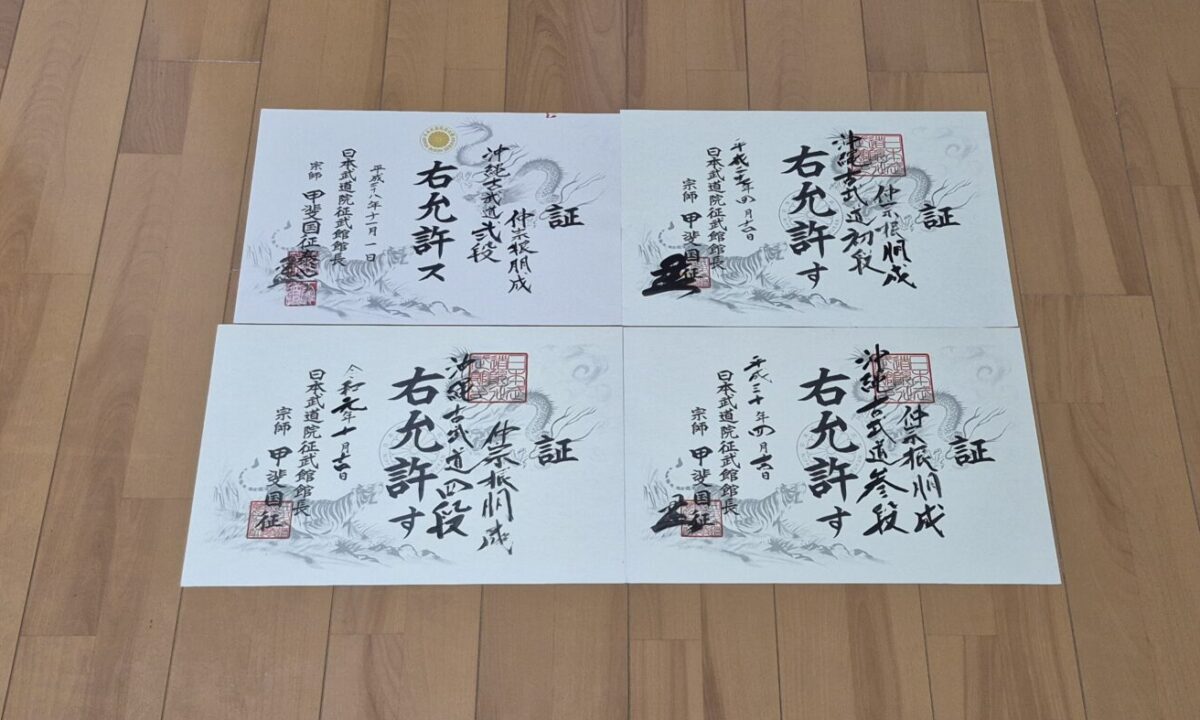 証
仲宗根朋成
沖縄古武道弐段
右允許ス
平成二十八年十一月一日
日本武道院征武館館長
宗師 甲斐国征泰心
証
仲宗根朋成
沖縄古武道初段
右允許す
年四月十六日
日本武道院征武館館長
宗師 甲斐国征
証
仲宗根朋成
沖縄古武道四段
右允許す
令和元年十月
日本武道院征武館館長
宗師 甲斐国征
証
仲宗根朋成
沖縄古武道参段
右允許す
平成三十年四月十六日
日本武道院征武館館長
宗師 甲斐国征